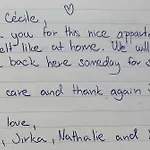 Cécile,
you for this nice appart
felt like at home. We will
back here someday for s
care and thank again
love,
, Jirka, Nathalie and